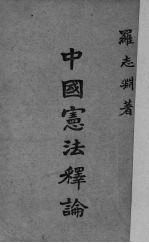 羅志淵著
中國憲法釋論